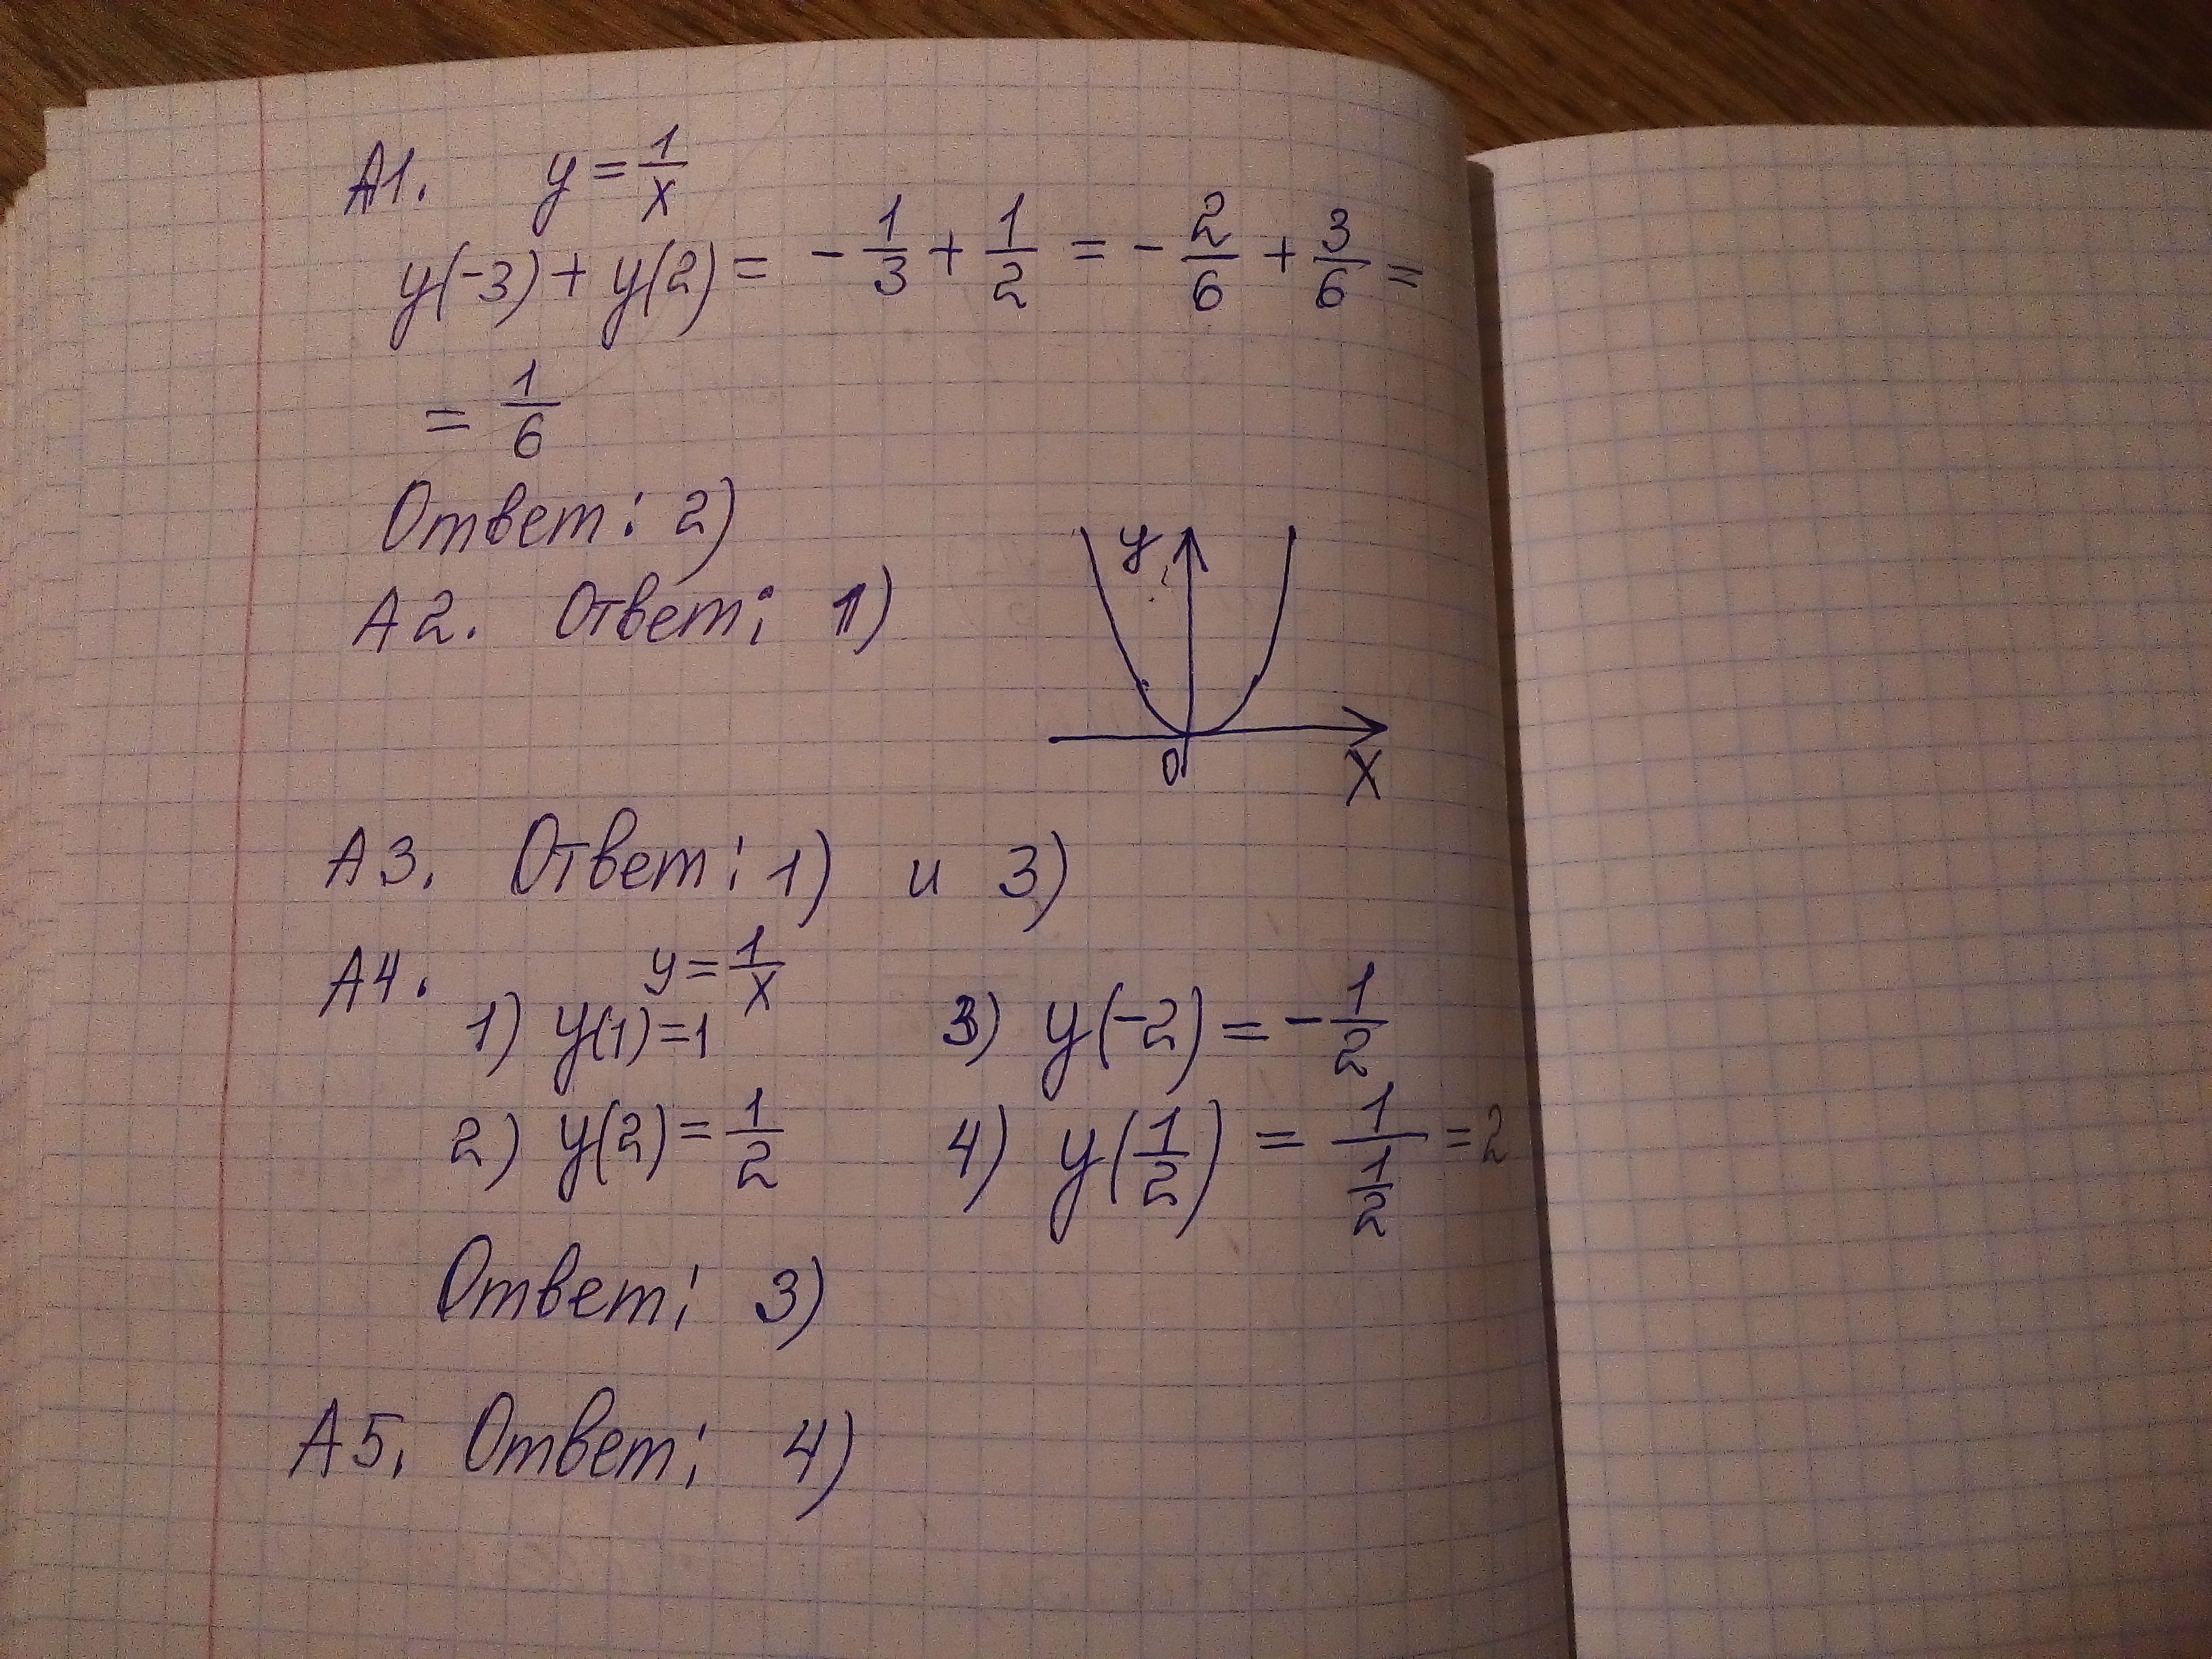 А1. y = 1/x
y(-3) + y(2) = - 1/3 + 1/2 = - 2/6 + 3/6 =
= 1/6
Ответ: 2)
А2. Ответ: 1)
y
0
x
А3. Ответ: 1) и 3)
А4. y = 1/x
1) y(1) = 1
3) y(-2) = - 1/2
2) y(2) = 1/2
4) y(1/2) = 1/(1/2) = 2
Ответ: 3)
А5. Ответ: 4)